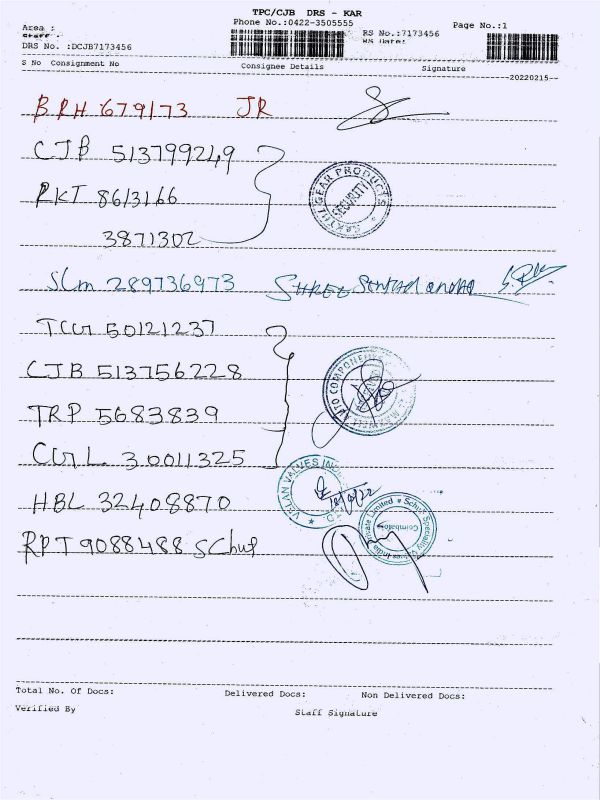 TPC/CJB DRS - KAR
Area :
Phone No.:0422-3505555
Page No.:1
Staff :
RS No.:7173456
RS Date:
DRS No. :DCJB7173456
S No Consignment No Consignee Details Signature
20220215
BRH 679173 JR
CJB 513799249
RKT 8613166
3871302
SAKTHI GEAR PRODUCTS
SECURITY
SLM 289736973 SHREE
TCR 50121237
CJB 513756228
TRP 5683839
CGL 30011325
AUTO COMPONENTS
VELAN VALVES IND
HBL 32408870
RPT 9088488 Schuf
Schuf Speciality Valves India Private Limited
Coimbatore
Total No. Of Docs: Delivered Docs: Non Delivered Docs:
Verified By Staff Signature